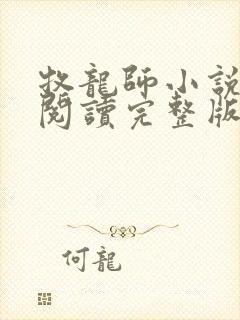 牧龍師小說
閱讀完整版
何龍